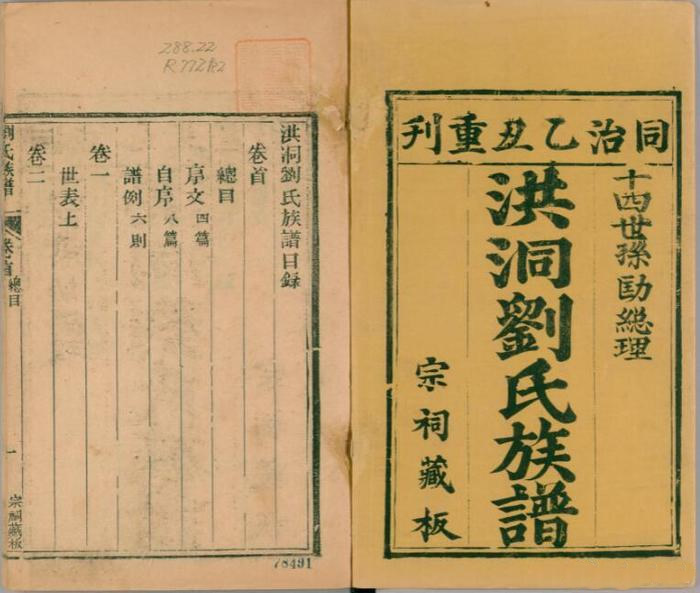 同治乙丑重刊
十四世孫総理
洪洞劉氏族譜
宗祠藏板
288.22
洪洞劉氏族譜目錄
卷首
總目
序文 四篇
自序 八篇
譜例 六則
卷一
世表上
卷二
劉氏族譜 卷首 總目 一 宗祠藏板
78491